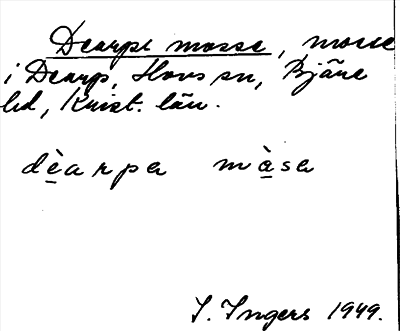 Dearps mosse, mosse
i Dearp, Hovs sn, Bjäre
hd, Krist. län.
dèarpa màsa
I. Ingers 1949.